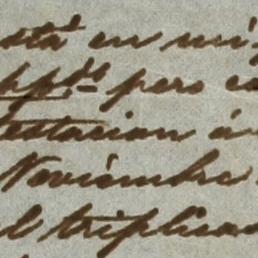 stá en mi
pp.do pero c
testacion á
Noviembre
l triplica